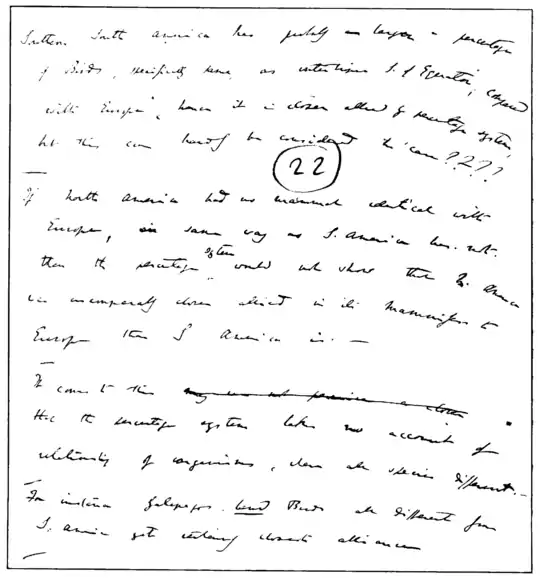 Southern South America has probably as large a percentage
of Birds, specifically same, as intertropics S. of Equator, compared
with Europe, hence it is closer allied by percentage system,
but this can hardly be considered the case????
22
If North America had no mammal identical with
Europe, in same way as S. America has not.
then the percentage system would not show that N. America
was incomparably closer allied in its Mammifers to
Europe than S America is. —
It comes to this
that the percentage system takes no account of
relationship of congenerisms, where all species different. —
For instance Galapagos. land Birds all different from
S. America yet certainly closest alliance